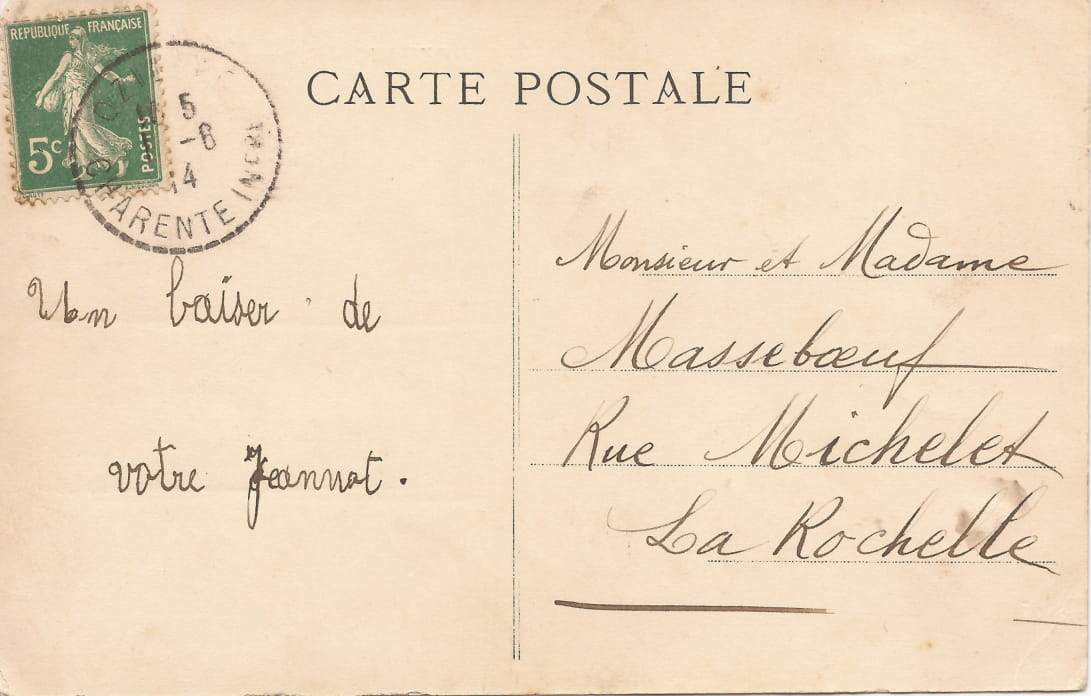 RÉPUBLIQUE FRANÇAISE
5c
POSTES
5
-6
14
CHARENTE INFRE
CARTE POSTALE
Un baiser de
votre Jeannot.
Monsieur et Madame
Massebœuf
Rue Michelet
La Rochelle